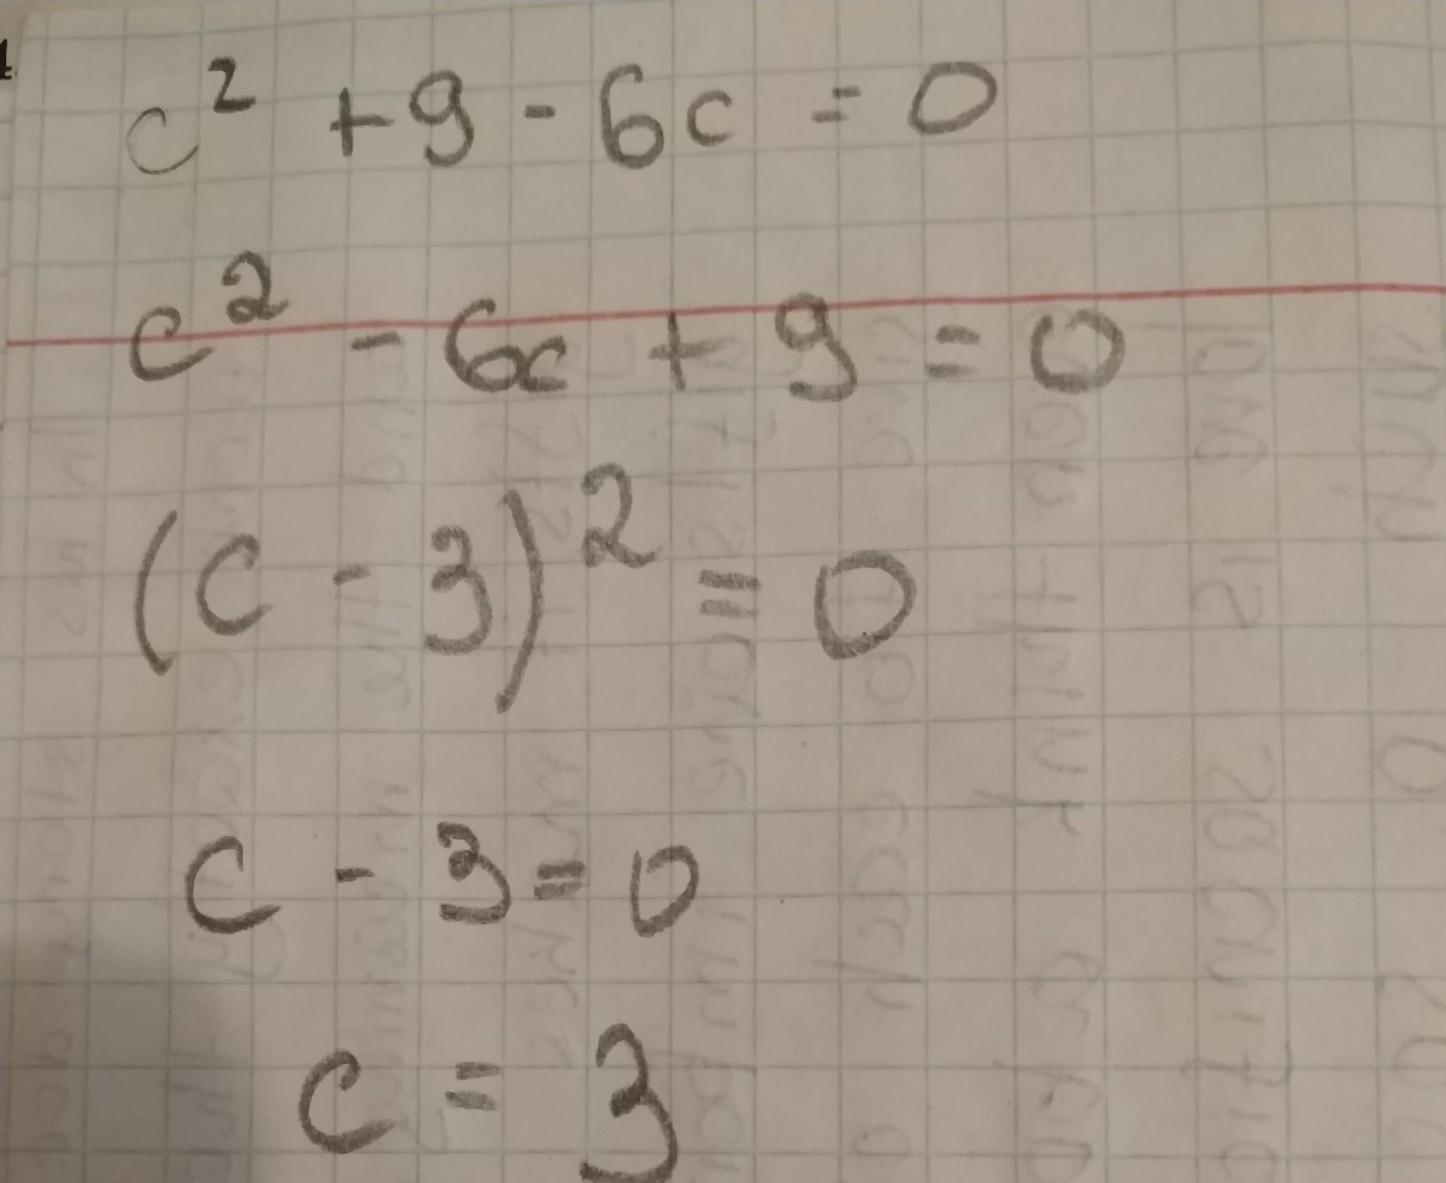 c² + 9 - 6c = 0
c² - 6c + 9 = 0
(c - 3)² = 0
c - 3 = 0
c = 3